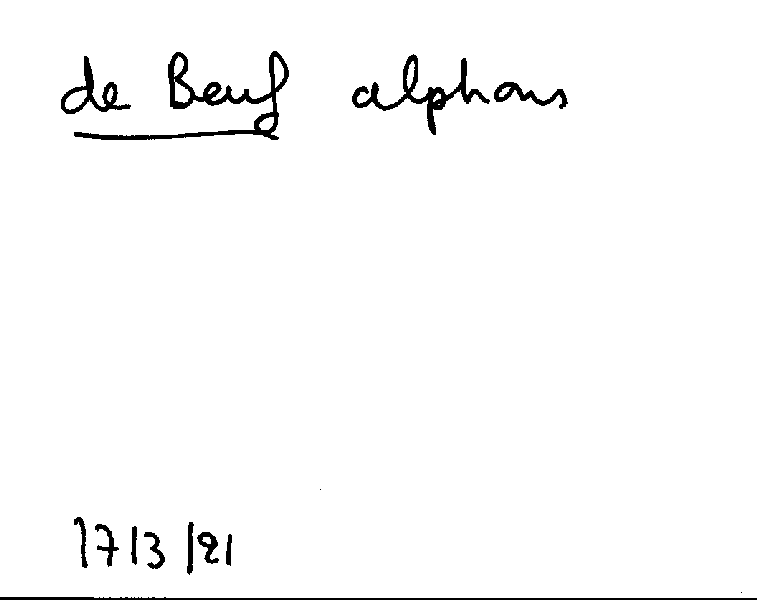 de Beuf alphons
17/3/21